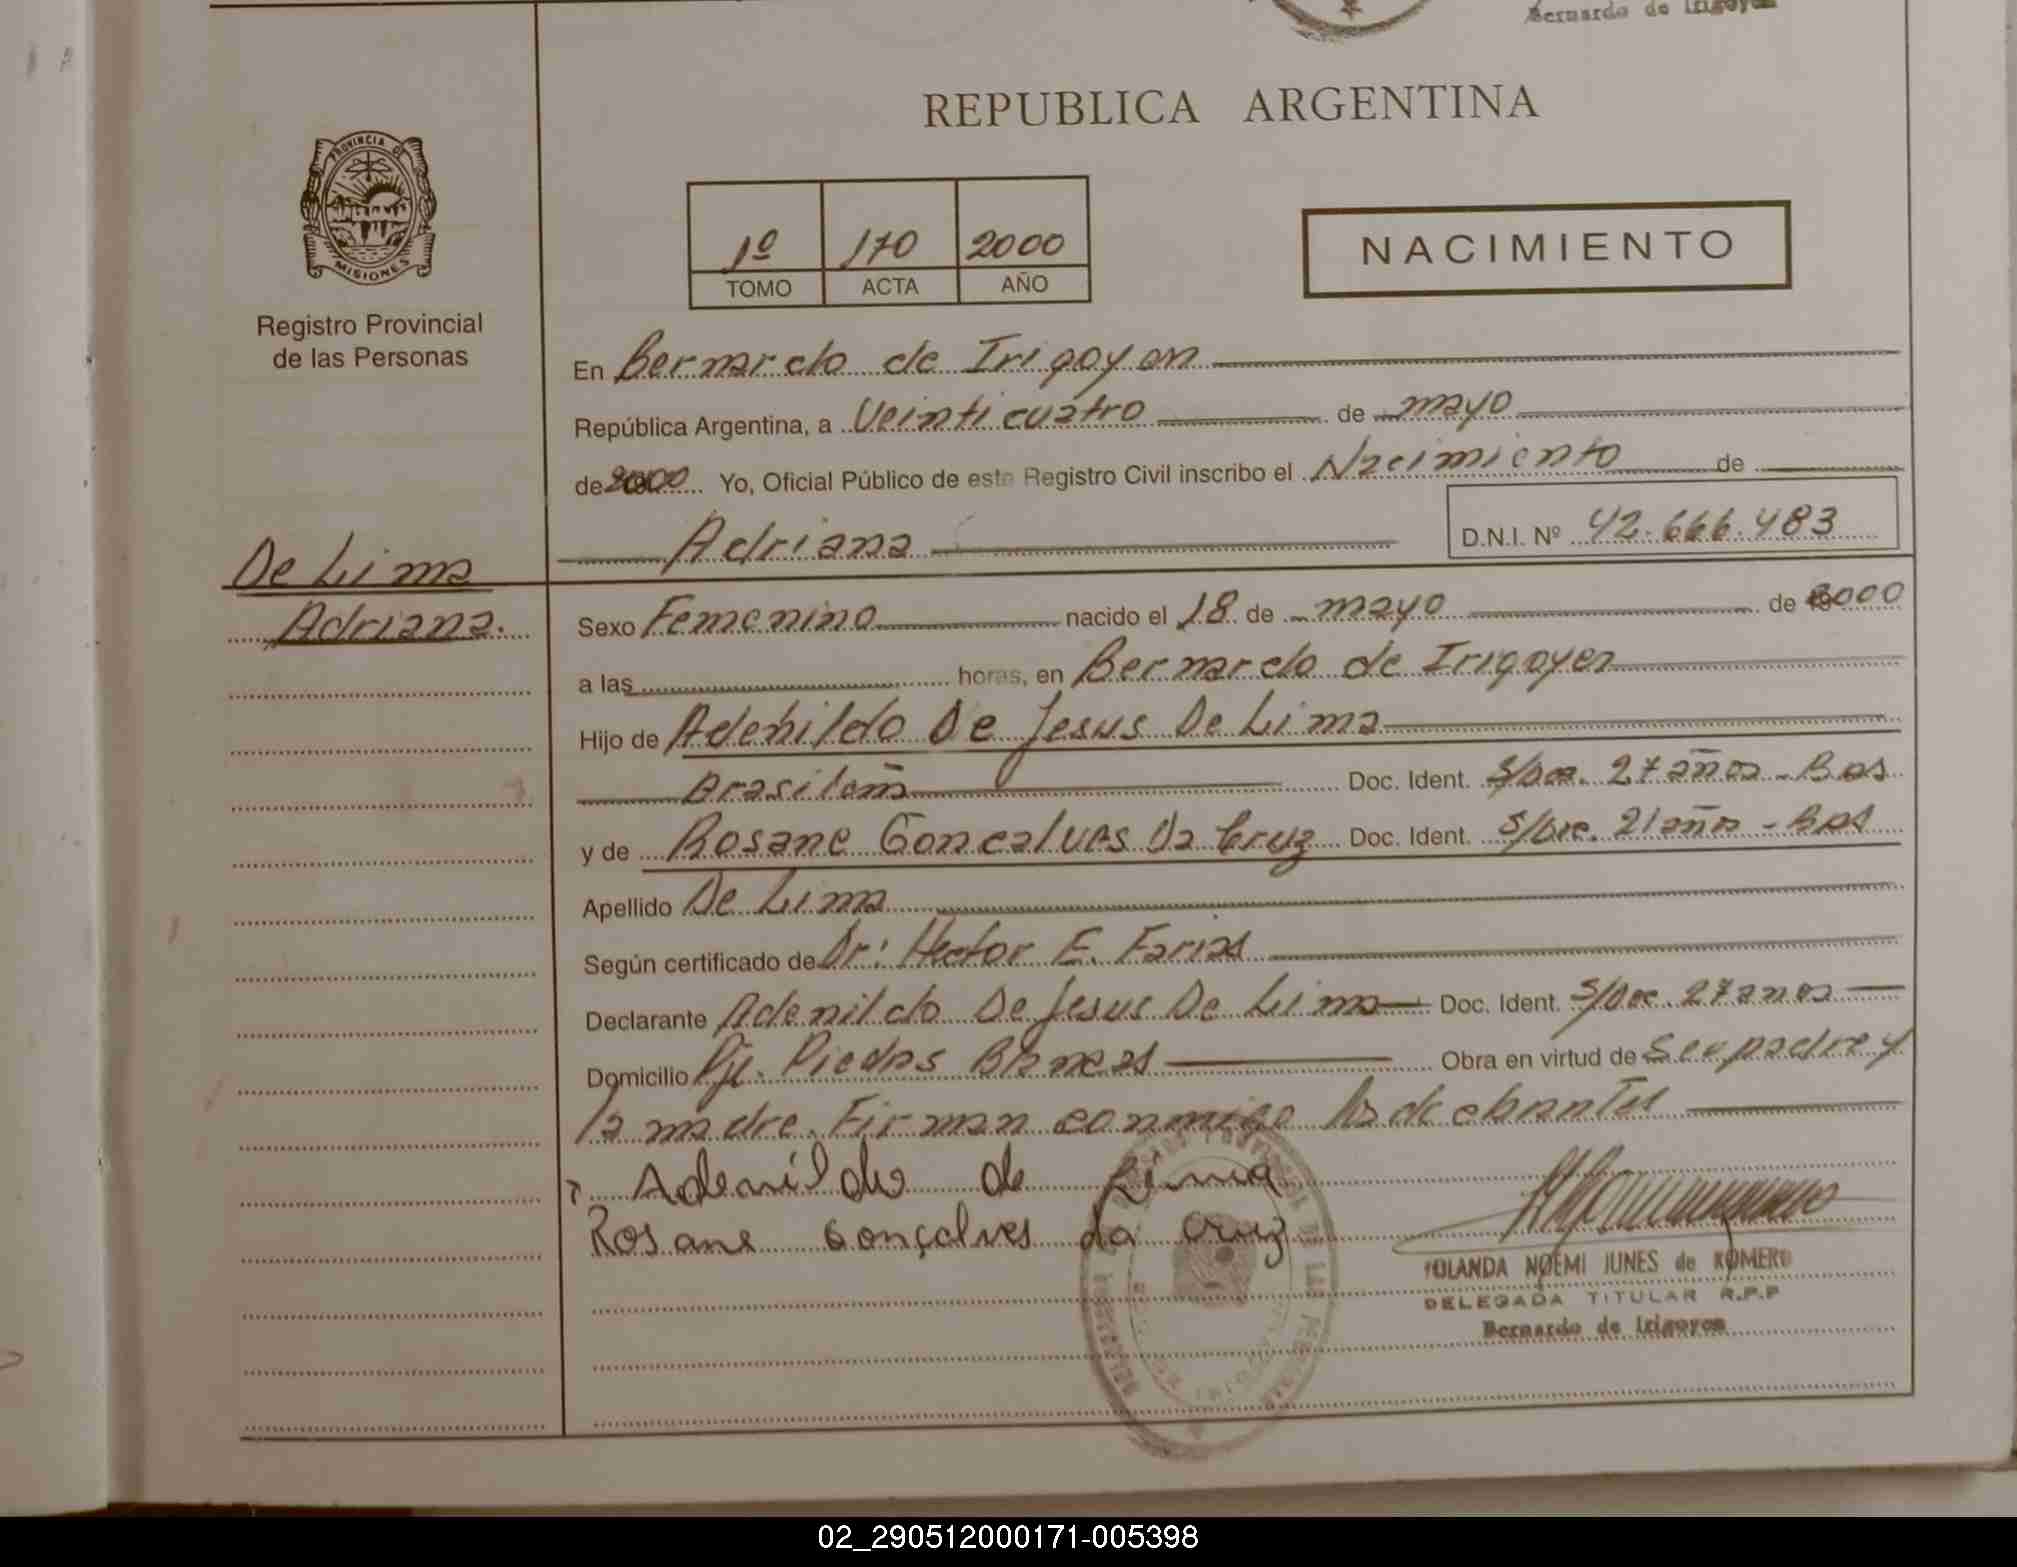 Bernardo de Irigoyen
REPUBLICA ARGENTINA
PROVINCIA DE
MISIONES
Registro Provincial
de las Personas
1º 170 2000
TOMO ACTA AÑO
NACIMIENTO
En Bernardo de Irigoyen
República Argentina, a Veinticuatro de mayo
de 2000 Yo, Oficial Público de este Registro Civil inscribo el Nacimiento de
Adriana D.N.I. Nº 42.666.483
De Lima
Adriana.
Sexo Femenino nacido el 18 de mayo de 2000
a las horas, en Bernardo de Irigoyen
Hijo de Adenildo De Jesus De Lima
Brasileña Doc. Ident. S/Doc. 27 años - Bas
y de Rosane Goncalves Da Cruz Doc. Ident. S/Doc. 21 años - Bas
Apellido De Lima
Según certificado de Dr: Hector E. Farias
Declarante Adenildo De Jesus De Lima Doc. Ident. S/Doc. 27 anos
Domicilio Pje. Piedras Blancas Obra en virtud de Ser padre y
la madre. Firman conmigo
Adenildo de Lima
Rosane Gonçalves da Cruz
YOLANDA NOEMI JUNES de ROMERO
DELEGADA TITULAR R.P.P
Bernardo de Irigoyen
02_290512000171-005398